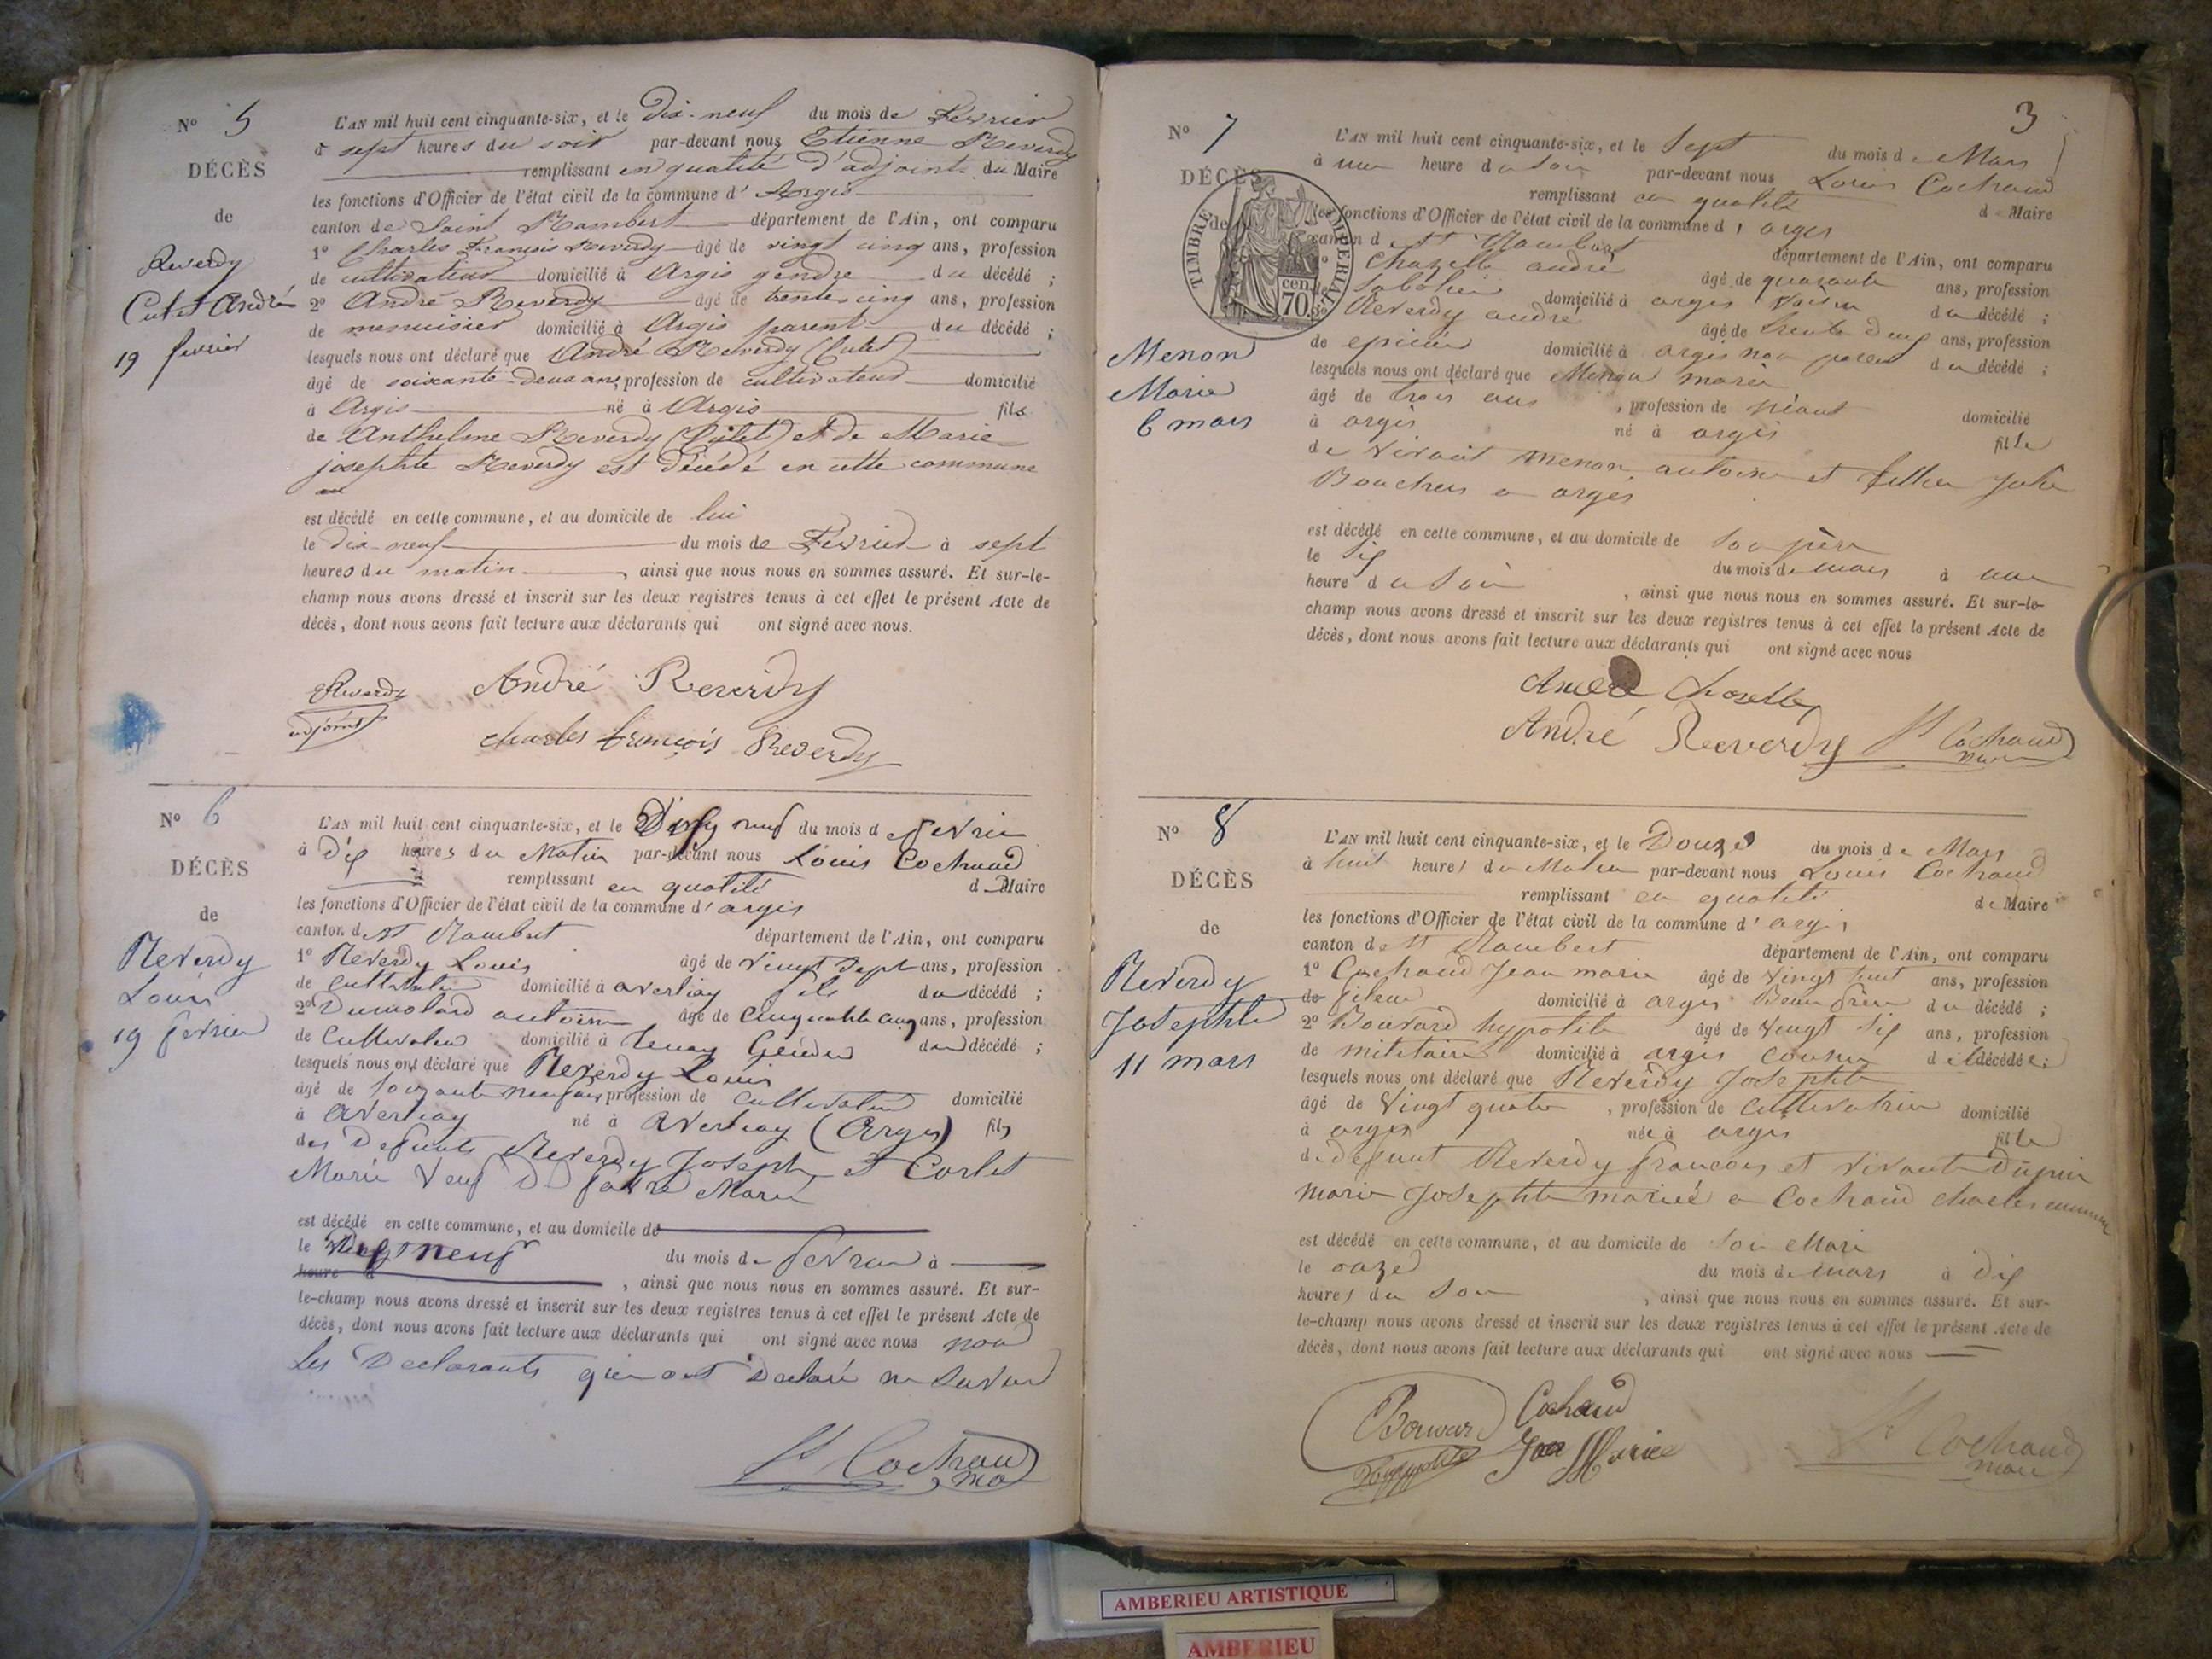 N° 5
DÉCÈS
de
Reverdy
Cutet André
19 fevrier
L'AN mil huit cent cinquante-six, et le dix-neuf du mois de Février
à sept heures du soir par-devant nous Etienne Reverdy
remplissant en qualité d'adjoint du Maire
les fonctions d'Officier de l'état civil de la commune d' Argis
canton de Saint Rambert département de l'Ain, ont comparu
1° Charles François Reverdy âgé de vingt cinq ans, profession
de cultivateur domicilié à Argis gendre du décédé ;
2° André Reverdy âgé de trente cinq ans, profession
de menuisier domicilié à Argis parent du décédé ;
lesquels nous ont déclaré que André Reverdy (Cutet)
âgé de soixante-deux ans, profession de cultivateur domicilié
à Argis né à Argis fils
de Anthelme Reverdy (Cutet) et de Marie
josephte Reverdy est décédé en cette commune
est décédé en cette commune, et au domicile de lui
le dix-neuf du mois de Février à sept
heures du matin, ainsi que nous nous en sommes assuré. Et sur-le-
champ nous avons dressé et inscrit sur les deux registres tenus à cet effet le présent Acte de
décès, dont nous avons fait lecture aux déclarants qui ont signé avec nous.
Reverdy André Reverdy
adjoint
Charles François Reverdy
N° 6
DÉCÈS
de
Reverdy
Louis
19 fevrier
L'AN mil huit cent cinquante-six, et le Dix neuf du mois d fevrier
à Dix heures du Matin par-devant nous Louis Cochaud
remplissant en qualité d Maire
les fonctions d'Officier de l'état civil de la commune d' argis
canton d St Rambert département de l'Ain, ont comparu
1° Reverdy Louis âgé de vingt sept ans, profession
de cultivateur domicilié à averliay fils du décédé ;
2° Dumolard antoine âgé de cinquante cinq ans, profession
de Cultivateur domicilié à Tenay du décédé ;
lesquels nous ont déclaré que Reverdy Louis
âgé de soixante neuf ans, profession de cultivateur domicilié
à averliay né à averliay (Argis) fils
des Defunts Reverdy Joseph et Corlet
Marie veuf D favre Marie
est décédé en cette commune, et au domicile de
le Dix neuf du mois de fevrier à
heure d, ainsi que nous nous en sommes assuré. Et sur-
le-champ nous avons dressé et inscrit sur les deux registres tenus à cet effet le présent Acte de
décès, dont nous avons fait lecture aux déclarants qui ont signé avec nous non
les Declarants qui ont Declaré ne Savoir
Ls Cochaud
N° 7
3
DÉCÈS
de
TIMBRE IMPERIAL
70 cen.
Menon
Marie
6 mars
L'AN mil huit cent cinquante-six, et le Sept du mois de Mars
à une heure du Soir par-devant nous Louis Cochaud
remplissant en qualité de Maire
les fonctions d'Officier de l'état civil de la commune d' argis
canton d St Rambert département de l'Ain, ont comparu
Chazelle andré âgé de quarante ans, profession
domicilié à argis voisin du décédé ;
Reverdy andré âgé de trente deux ans, profession
de epicier domicilié à argis non parent du décédé ;
lesquels nous ont déclaré que Menon marie
âgé de trois ans, profession de néant domicilié
à argis né à argis fille
de vivant menon antoine et Julie
a argis
est décédé en cette commune, et au domicile de Son père
le Six du mois de mars à une
heure du Soir, ainsi que nous nous en sommes assuré. Et sur-le-
champ nous avons dressé et inscrit sur les deux registres tenus à cet effet le présent Acte de
décès, dont nous avons fait lecture aux déclarants qui ont signé avec nous
André Chazelle
André Reverdy Ls Cochaud
N° 8
DÉCÈS
de
Reverdy
Josephte
11 mars
L'AN mil huit cent cinquante-six, et le Douze du mois de Mars
à huit heures du Matin par-devant nous Louis Cochaud
remplissant en qualité de Maire
les fonctions d'Officier de l'état civil de la commune d' argis
canton de St Rambert département de l'Ain, ont comparu
1° Cochaud Jean marie âgé de vingt huit ans, profession
de fileur domicilié à argis Beau frère du décédé ;
2° Bouvard hypolite âgé de vingt Six ans, profession
de militaire domicilié à argis cousin de décédée ;
lesquels nous ont déclaré que Reverdy Josephte
âgé de vingt quatre, profession de cultivatrice domicilié
à argis née à argis fille
de defunt Reverdy francois et vivante Dupuis
marie Josephte mariée a Cochaud charles
est décédé en cette commune, et au domicile de Son Mari
le onze du mois de mars à Dix
heures du Soir, ainsi que nous nous en sommes assuré. Et sur-
le-champ nous avons dressé et inscrit sur les deux registres tenus à cet effet le présent Acte de
décès, dont nous avons fait lecture aux déclarants qui ont signé avec nous
Bouvard Cochaud
Hippolite Jean Marie Ls Cochaud
maire
AMBERIEU ARTISTIQUE
AMBERIEU